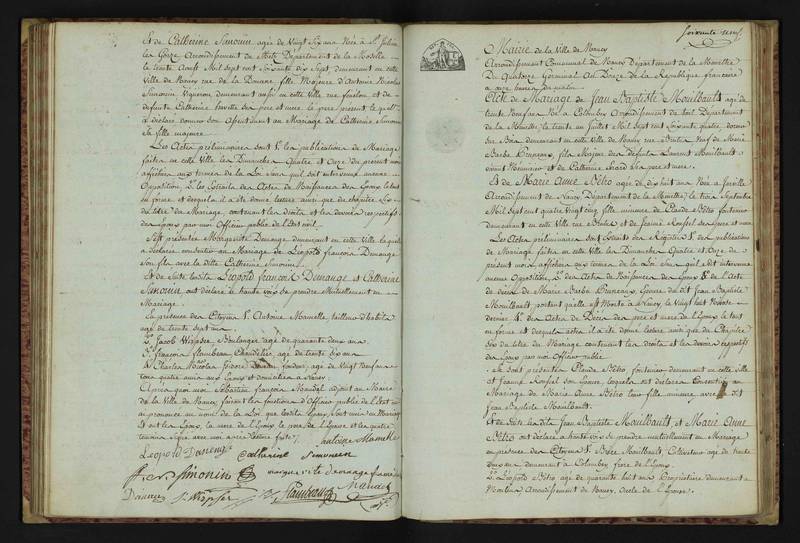 Et de Catherine Simonin agée de Vingt Six ans Née à St. Julien
les Gorze Arrondissement de Metz Département de la Moselle
le trente Août Mil Sept cent Soixante dix Sept, demeurant en cette
Ville de Nancy rue de la Douane, fille Majeure d'Antoine Nicolas
Simonin Vigneron, demeurant aussi en cette Ville et de
defunte Catherine ses pere et mere, le pere présent lequel
a déclaré donner son Assentiment au Mariage de Catherine Simonin
Sa fille majeure.
Les Actes préliminaires sont 1°. les publications de Mariage
faites en cette Ville les Dimanches Quatre et Onze du présent mois
affichées aux termes de la Loi sans qu'il soit intervenu aucune
Opposition 2°. les Extraits des Actes de Naissances des Epoux le tout
en forme et desquels il a été donné lecture ainsi que du chapitre Six
du titre du Mariage, contenant les droits et les devoirs respectifs
des Epoux par moi Officier public de l'Etat civil.
S'est présentée Marguerite Demange demeurant en cette Ville laquelle
a déclaré consentir au Mariage de Léopold françois Demange
Son fils avec la ditte Catherine Simonin.
Et de Suite lesdits Léopold françois Demange et Catherine
Simonin ont déclaré à haute voix se prendre Mutuellement en
Mariage.
En présence des Citoyens 1°. Antoine Mamelle, tailleur d'habits
agé de trente Sept ans.
2°. Jacob Boulanger agé de quarante deux ans.
3°. françois flambeau Chandelier, agé de trente dix ans
4°. Charles Nicolas fondeur, agé de Vingt Neuf ans
tous quatre amis aux Epoux et domiciliés à Nancy.
Après quoi moi Sébastien françois Mandel adjoint au Maire
de la Ville de Nancy, faisant les fonctions d'Officier public de l'Etat civil
ai prononcé au nom de la Loi, que lesdits Epoux, sont unis en Mariage
Et ont les Epoux, la mere de l'Epoux, le pere de l'Epouse et les quatre
temoins signé avec moi après lecture faite.
antoine Mamelle
Leopold Demenge Catherine Simoneen
Simonin marguerite demange
flambeau Mandel
Soixante neuf
Mairie de la Ville de Nancy
Arrondissement Communal de Nancy Département de la Meurthe
Du Quatorze Germinal An Onze de la République française
à onze heures du matin
Acte de Mariage de Jean Baptiste Moulbault agé de
trente Neuf ans Né à Colombey Arrondissement de Toul Département
de la Meurthe, le trente un Juillet Mil Sept cent Soixante quatre,
demeurant en cette Ville de Nancy Veuf de Marie
Barbe Pruneaux, fils Majeur des défunts Laurent Moulbault
Vivant et de Catherine Ses pere et mere.
Et de Marie Anne Pétro agée de dix huit ans Née à Jarville
Arrondissement de Nancy, Département de la Meurthe, le trois Septembre
Mil Sept cent quatre Vingt Cinq fille mineure de Claude Pétro fontenier
demeurant en cette Ville et de Jeanne Roussel Ses pere et mere
Les Actes préliminaires sont Extraits des Registres 1°. des publications
de Mariage faites en cette Ville les Dimanches Quatre et Onze du
présent mois affichées aux termes de la Loi Sans qu'il soit intervenu
aucune Opposition 2°. des Actes de Naissances des Epoux 3°. de l'Acte
de décès de Marie Barbe Pruneaux Epouse du dit Jean Baptiste
Moulbault portant qu'elle est Morte à Nancy, le Vingt huit
dernier 4°. des Actes de Décès des pere et mere de l'Epoux le tout
en forme et desquels actes il a été donné lecture ainsi que du Chapitre
Six du titre du Mariage contenant les droits et les devoirs respectifs
des Epoux par moi Officier public.
Se Sont présentés Claude Pétro fontenier demeurant en cette Ville
et Jeanne Roussel Son Epouse lesquels ont déclaré Consentir au
Mariage de Marie Anne Pétro leur fille mineure avec le dit
Jean Baptiste Moulbault.
Et de Suite lesdits Jean Baptiste Moulbault et Marie Anne
Pétro ont déclaré à haute voix se prendre mutuellement en Mariage
en présence des Citoyens 1°. Moulbault, Cultivateur agé de trente
deux ans demeurant à Colombey frere de l'Epoux.
2°. Léopold Pétro agé de quarante huit ans Propriétaire demeurant à
Arrondissement de Nancy, oncle de l'Epouse.